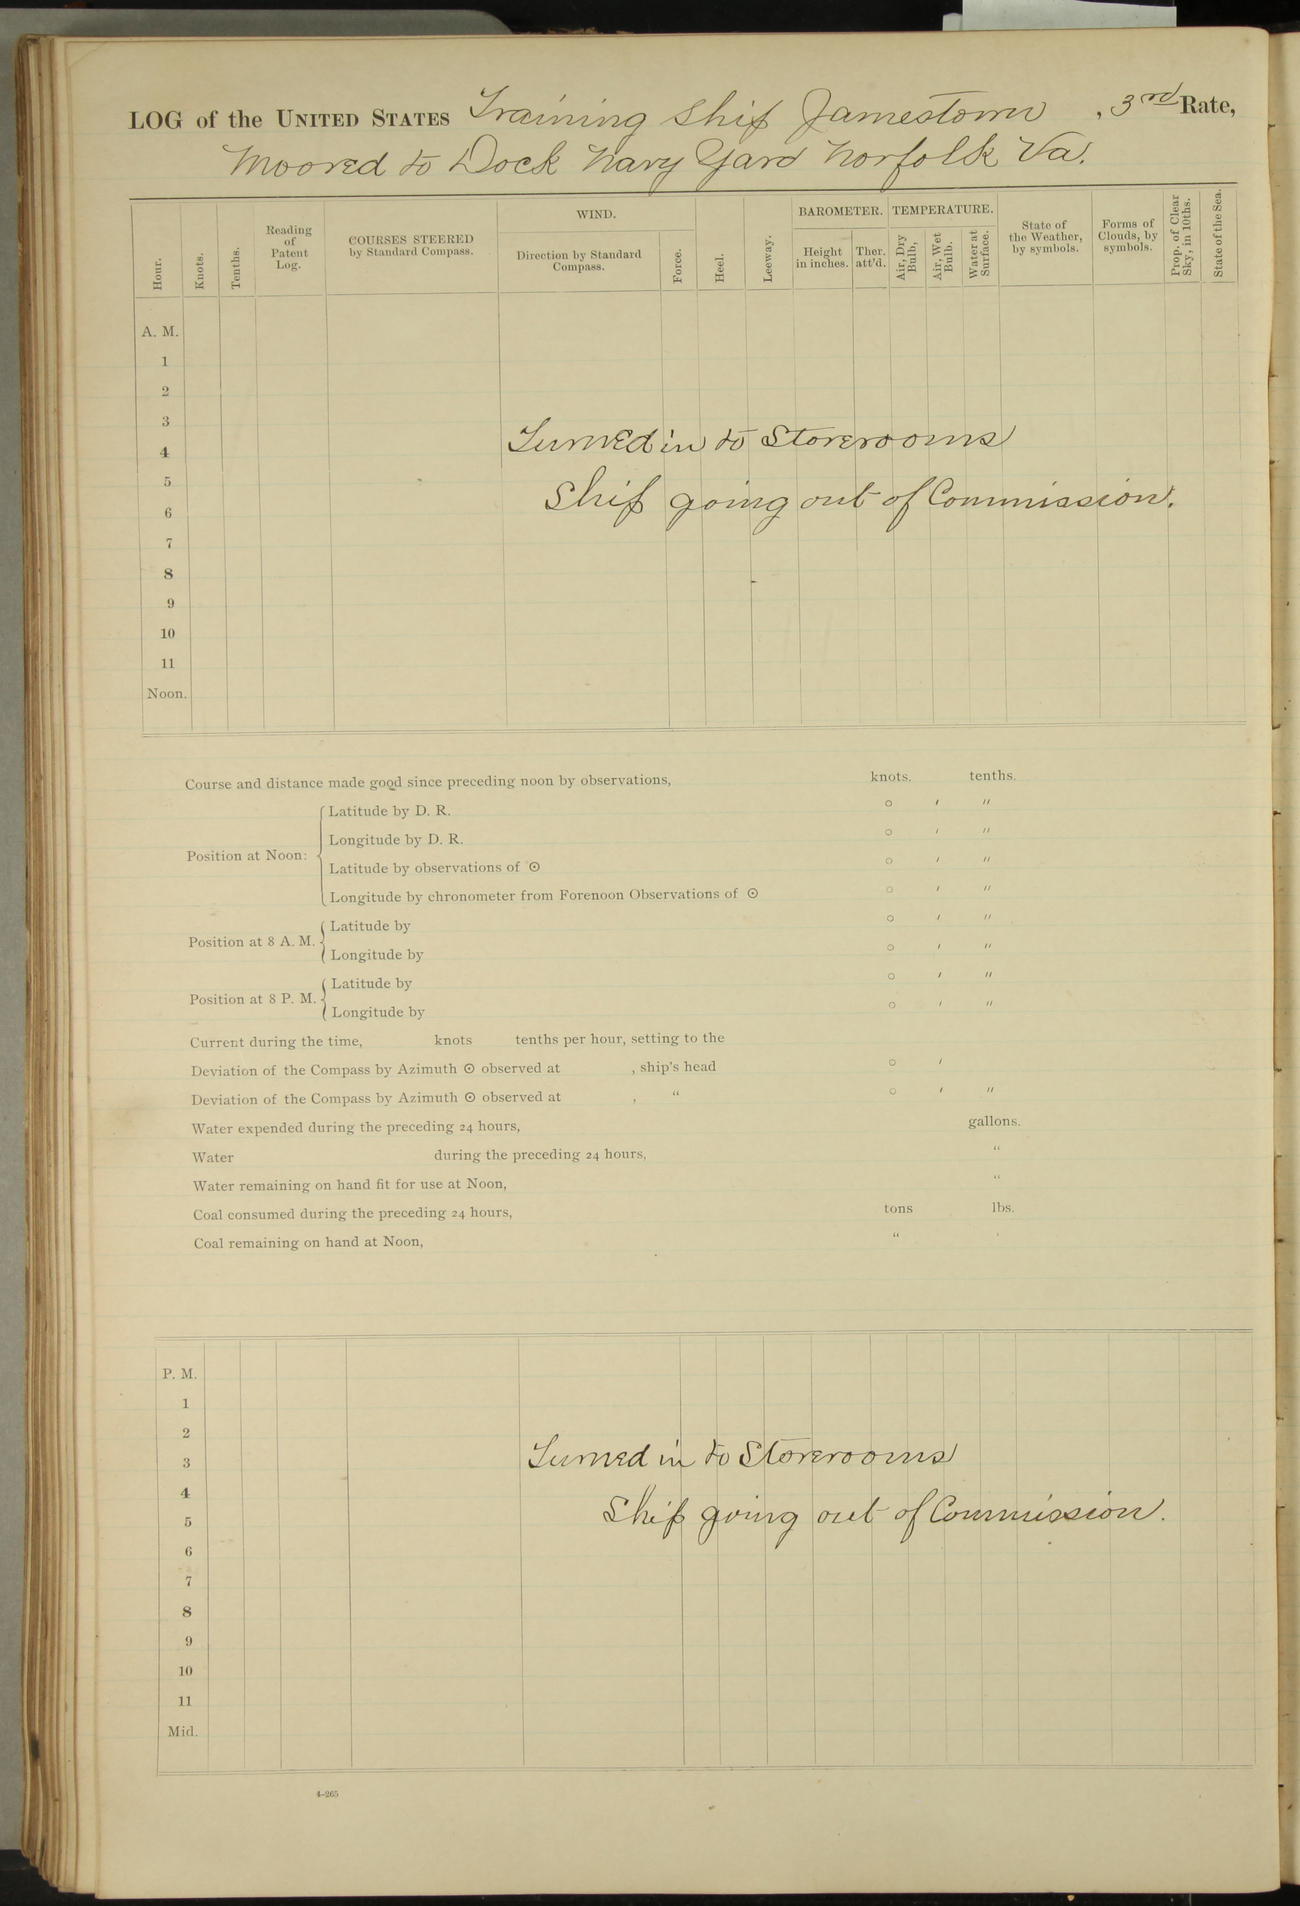 LOG of the UNITED STATES Training Ship Jamestown, 3rd Rate,
Moored to Dock Navy Yard Norfolk Va.
Hour.
Knots.
Tenths.
Reading of Patent Log.
COURSES STEERED by Standard Compass.
WIND.
Direction by Standard Compass.
Force.
Heel.
Leeway.
BAROMETER.
Height in inches.
Ther. att'd.
TEMPERATURE.
Air, Dry Bulb,
Air, Wet Bulb.
Water at Surface.
State of the Weather, by symbols.
Forms of Clouds, by symbols.
Prop. of Clear Sky, in 10ths.
State of the Sea.
A. M.
1
2
3
Turned in to Storerooms
4
5
Ship going out of Commission.
6
7
8
9
10
11
Noon.
Course and distance made good since preceding noon by observations, knots. tenths.
Position at Noon:
Latitude by D. R. ° ′ ″
Longitude by D. R. ° ′ ″
Latitude by observations of ⊙ ° ′ ″
Longitude by chronometer from Forenoon Observations of ⊙ ° ′ ″
Position at 8 A. M.
Latitude by ° ′ ″
Longitude by ° ′ ″
Position at 8 P. M.
Latitude by ° ′ ″
Longitude by ° ′ ″
Current during the time, knots tenths per hour, setting to the
Deviation of the Compass by Azimuth ⊙ observed at , ship's head ° ′
Deviation of the Compass by Azimuth ⊙ observed at , “ ° ′ ″
Water expended during the preceding 24 hours, gallons.
Water during the preceding 24 hours, “
Water remaining on hand fit for use at Noon, “
Coal consumed during the preceding 24 hours, tons lbs.
Coal remaining on hand at Noon, “ ‘
P. M.
1
2
Turned in to Storerooms
3
4
Ship going out of Commission.
5
6
7
8
9
10
11
Mid.
4-265